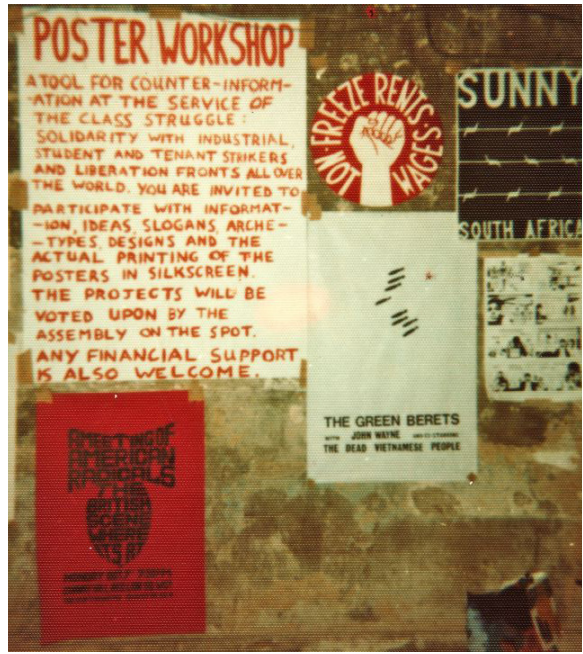 POSTER WORKSHOP
A TOOL FOR COUNTER-INFORM-
-ATION AT THE SERVICE OF
THE CLASS STRUGGLE:
SOLIDARITY WITH INDUSTRIAL,
STUDENT AND TENANT STRIKERS
AND LIBERATION FRONTS ALL OVER
THE WORLD. YOU ARE INVITED TO
PARTICIPATE WITH INFORMAT-
-ION, IDEAS, SLOGANS, ARCHE-
-TYPES, DESIGNS AND THE
ACTUAL PRINTING OF THE
POSTERS IN SILKSCREEN.
THE PROJECTS WILL BE
VOTED UPON BY THE
ASSEMBLY ON THE SPOT.
ANY FINANCIAL SUPPORT
IS ALSO WELCOME.
FREEZE RENTS
NOT WAGES
SUNNY
SOUTH AFRICA
THE GREEN BERETS
WITH JOHN WAYNE AND CO-STARRING
THE DEAD VIETNAMESE PEOPLE
A MEETING OF
AMERICAN
RADICALS
THE
BRITISH
SCENE
WHERE
MONDAY